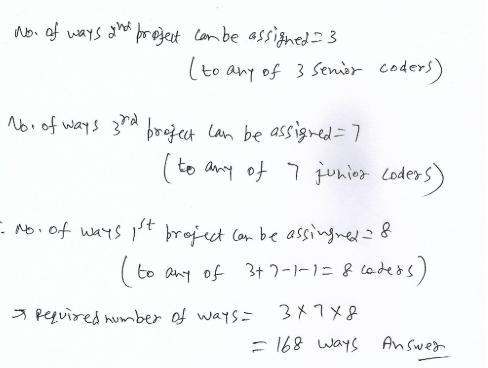 No. of ways 2nd project can be assigned = 3
(to any of 3 senior coders)
No. of ways 3rd project can be assigned = 7
(to any of 7 junior coders)
∴ No. of ways 1st project can be assingned = 8
(to any of 3+7-1-1 = 8 coders)
⇒ Required number of ways = 3×7×8
= 168 ways Answer